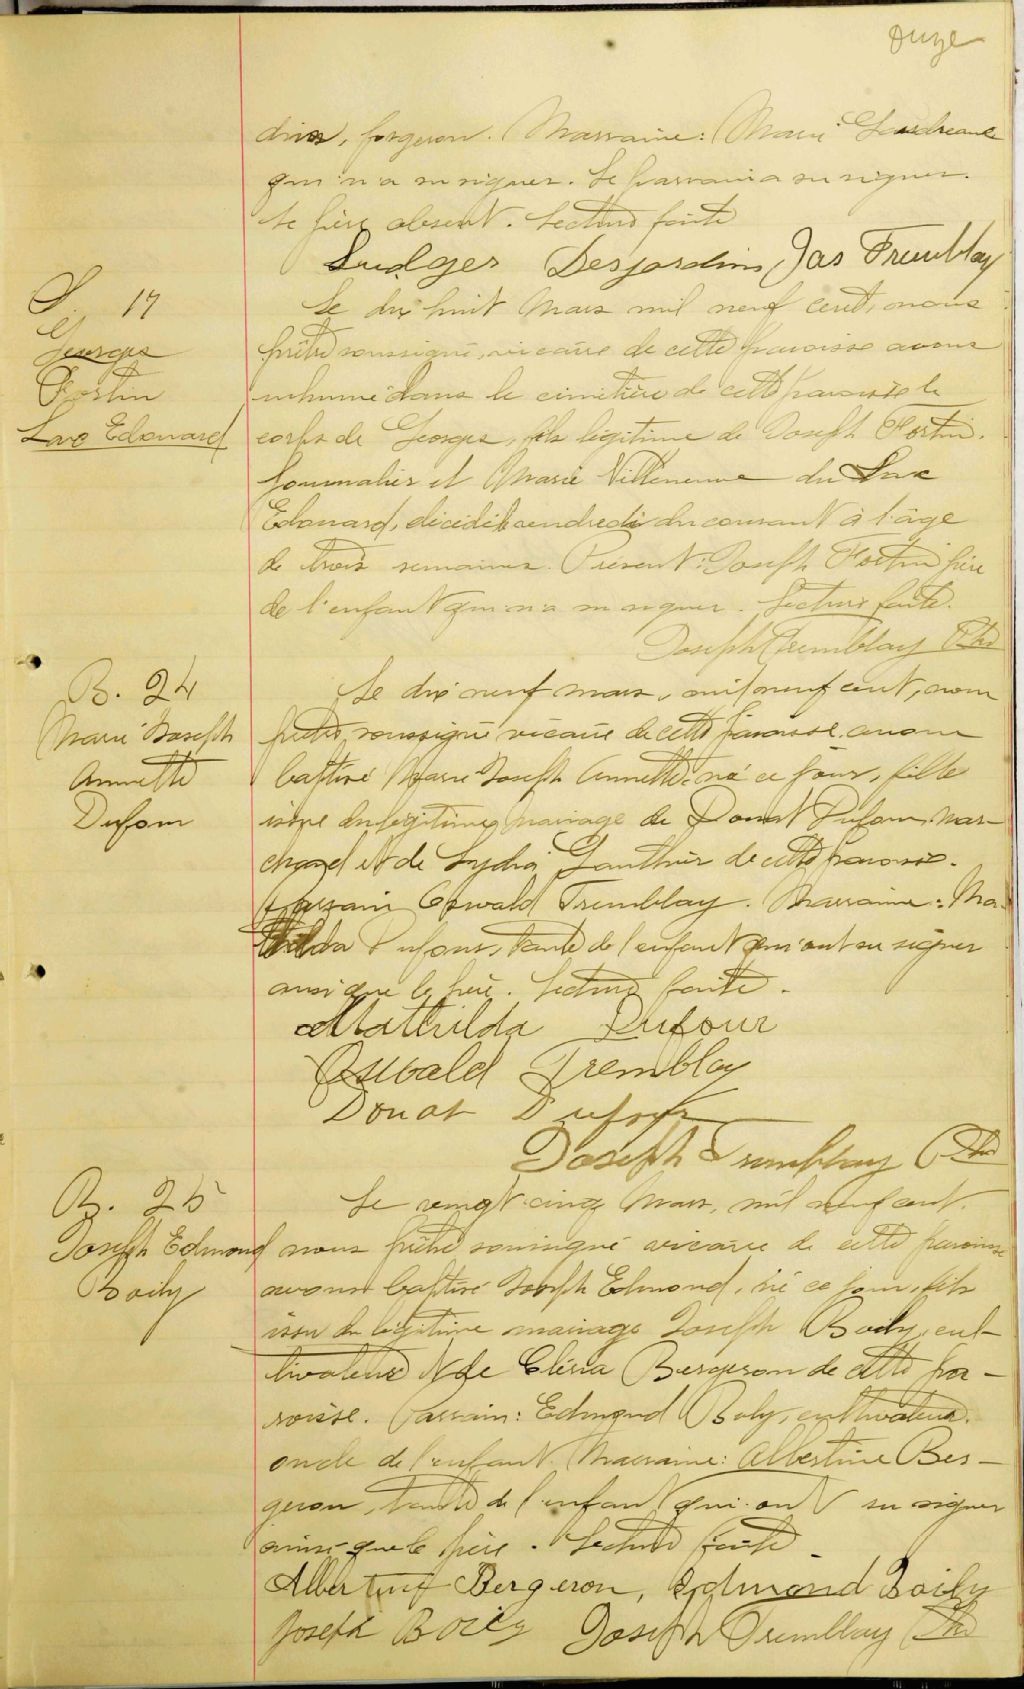 onze
dins, forgeron. Marraine: Marie Gaudreault
qui n'a su signer. Le parrain a su signer.
Le père absent. Lecture faite
Ludger Desjardins Jos Tremblay
S. 17
Georges
Fortin
Lac Edouard
Le dix huit Mars mil neuf cent, nous
prêtre soussigné, vicaire de cette paroisse avons
inhumé dans le cimetière de cette paroisse le
corps de Georges, fils légitime de Joseph Fortin.
Journalier et Marie Villeneuve du Lac
Edouard, décédé vendredi du courant à l'âge
de trois semaines. Présent: Joseph Fortin père
de l'enfant qui n'a su signer. Lecture faite.
Joseph Tremblay Ptre
B. 24
Marie Joseph
Annette
Dufour
Le dix neuf mars, mil neuf cent, nous
prêtre soussigné vicaire de cette paroisse avons
baptisé Marie Joseph Annette, né ce jour, fille
issue du légitime mariage de Donat Dufour mar-
chand et de Lydia Gauthier de cette paroisse.
Parrain Oswald Tremblay. Marraine: Ma-
thilda Dufour, tante de l'enfant qui ont su signer
ainsi que le père. Lecture faite.
Mathilda Dufour
Oswald Tremblay
Donat Dufour
Joseph Tremblay Ptre
B. 25
Joseph Edmond
Boily
Le vingt cinq Mars, mil neuf cent.
nous prêtre soussigné vicaire de cette paroisse
avons baptisé Joseph Edmond, né ce jour, fils
issu du légitime mariage Joseph Boily, cul-
tivateur et de Cléria Bergeron de cette pa-
roisse. Parrain: Edmond Boly, cultivateur.
oncle de l'enfant. Marraine: Albertine Ber-
geron, tante de l'enfant qui ont su signer
ainsi que le père. Lecture faite.
Albertine Bergeron, Edmond Boily
Joseph Boily Joseph Tremblay Ptre